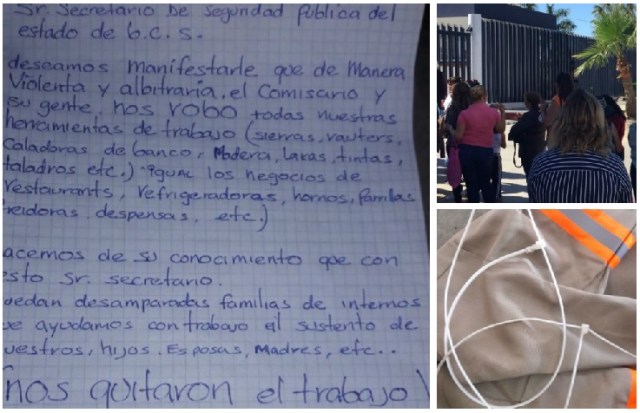 Sr. Secretario De seguridad Pública del
estado de b.c.s.
deseamos manifestarle que de Manera
Violenta y albitraria, el Comisario y
su gente, nos robo todas nuestras
herramientas de trabajo (sierras, rauters,
Caladoras de banco, Madera, lacas, tintas,
taladros etc.) igual los negocios de
restaurants, refrigeradoras, hornos, parrilas
freidoras despensas, etc.)
acemos de su conocimiento que con
esto Sr. secretario.
quedan desamparadas familias de internos
que ayudamos con trabajo al sustento de
nuestros, hijos. Esposas, Madres, etc..
(nos quitaron el trabajo)